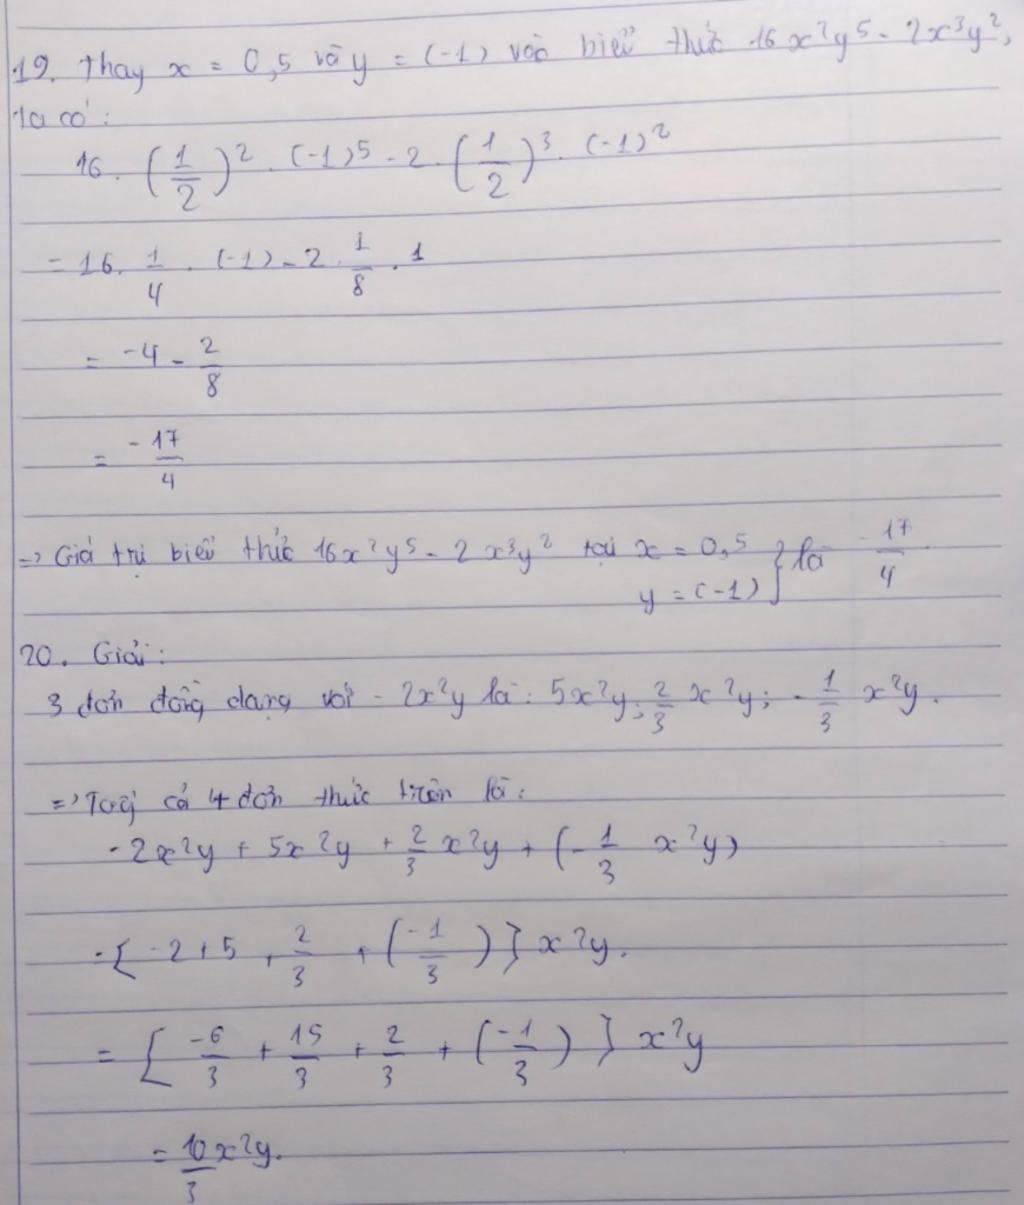 19. Thay x = 0,5 và y = (-1) vào biểu thức 16x²y⁵ - 2x³y²,
ta có:
16. (1/2)² . (-1)⁵ - 2. (1/2)³. (-1)²
= 16. 1/4 . (-1) - 2. 1/8 . 1
= -4 - 2/8
= -17/4
=> Giá trị biểu thức 16x²y⁵ - 2x³y² tại x = 0,5
y = (-1) } là -17/4
20. Giải:
3 đơn đồng dạng với -2x²y là: 5x²y; 2/3 x²y; -1/3 x²y.
=> cả 4 đơn thức trên là:
-2x²y + 5x²y + 2/3 x²y + (-1/3 x²y)
= [-2 + 5 + 2/3 + (-1/3)] x²y.
= [-6/3 + 15/3 + 2/3 + (-1/3)] x²y
= 10/3 x²y.